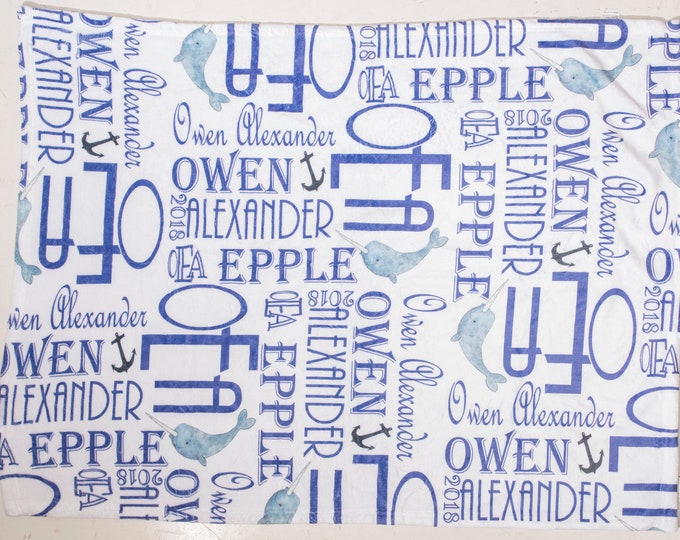 Owen Alexander
OWEN
ALEXANDER
OEA
ALEXANDER
OEA EPPLE
2018
Owen Alexander
OWEN
2018 ALEXANDER
OEA EPPLE
OEA
Owen Alexander
OWEN
ALEXANDER
2018
OEA EPPLE
OEA
OEA
Owen Alexander
OWEN
ALEXANDER
EPPLE
OEA
Owen Alexander
OWEN
ALEXANDER
2018
OEA EPPLE
Owen Alexander
OWEN
2018 ALEXANDER
OWEN
ALEXANDER
2018
OEA